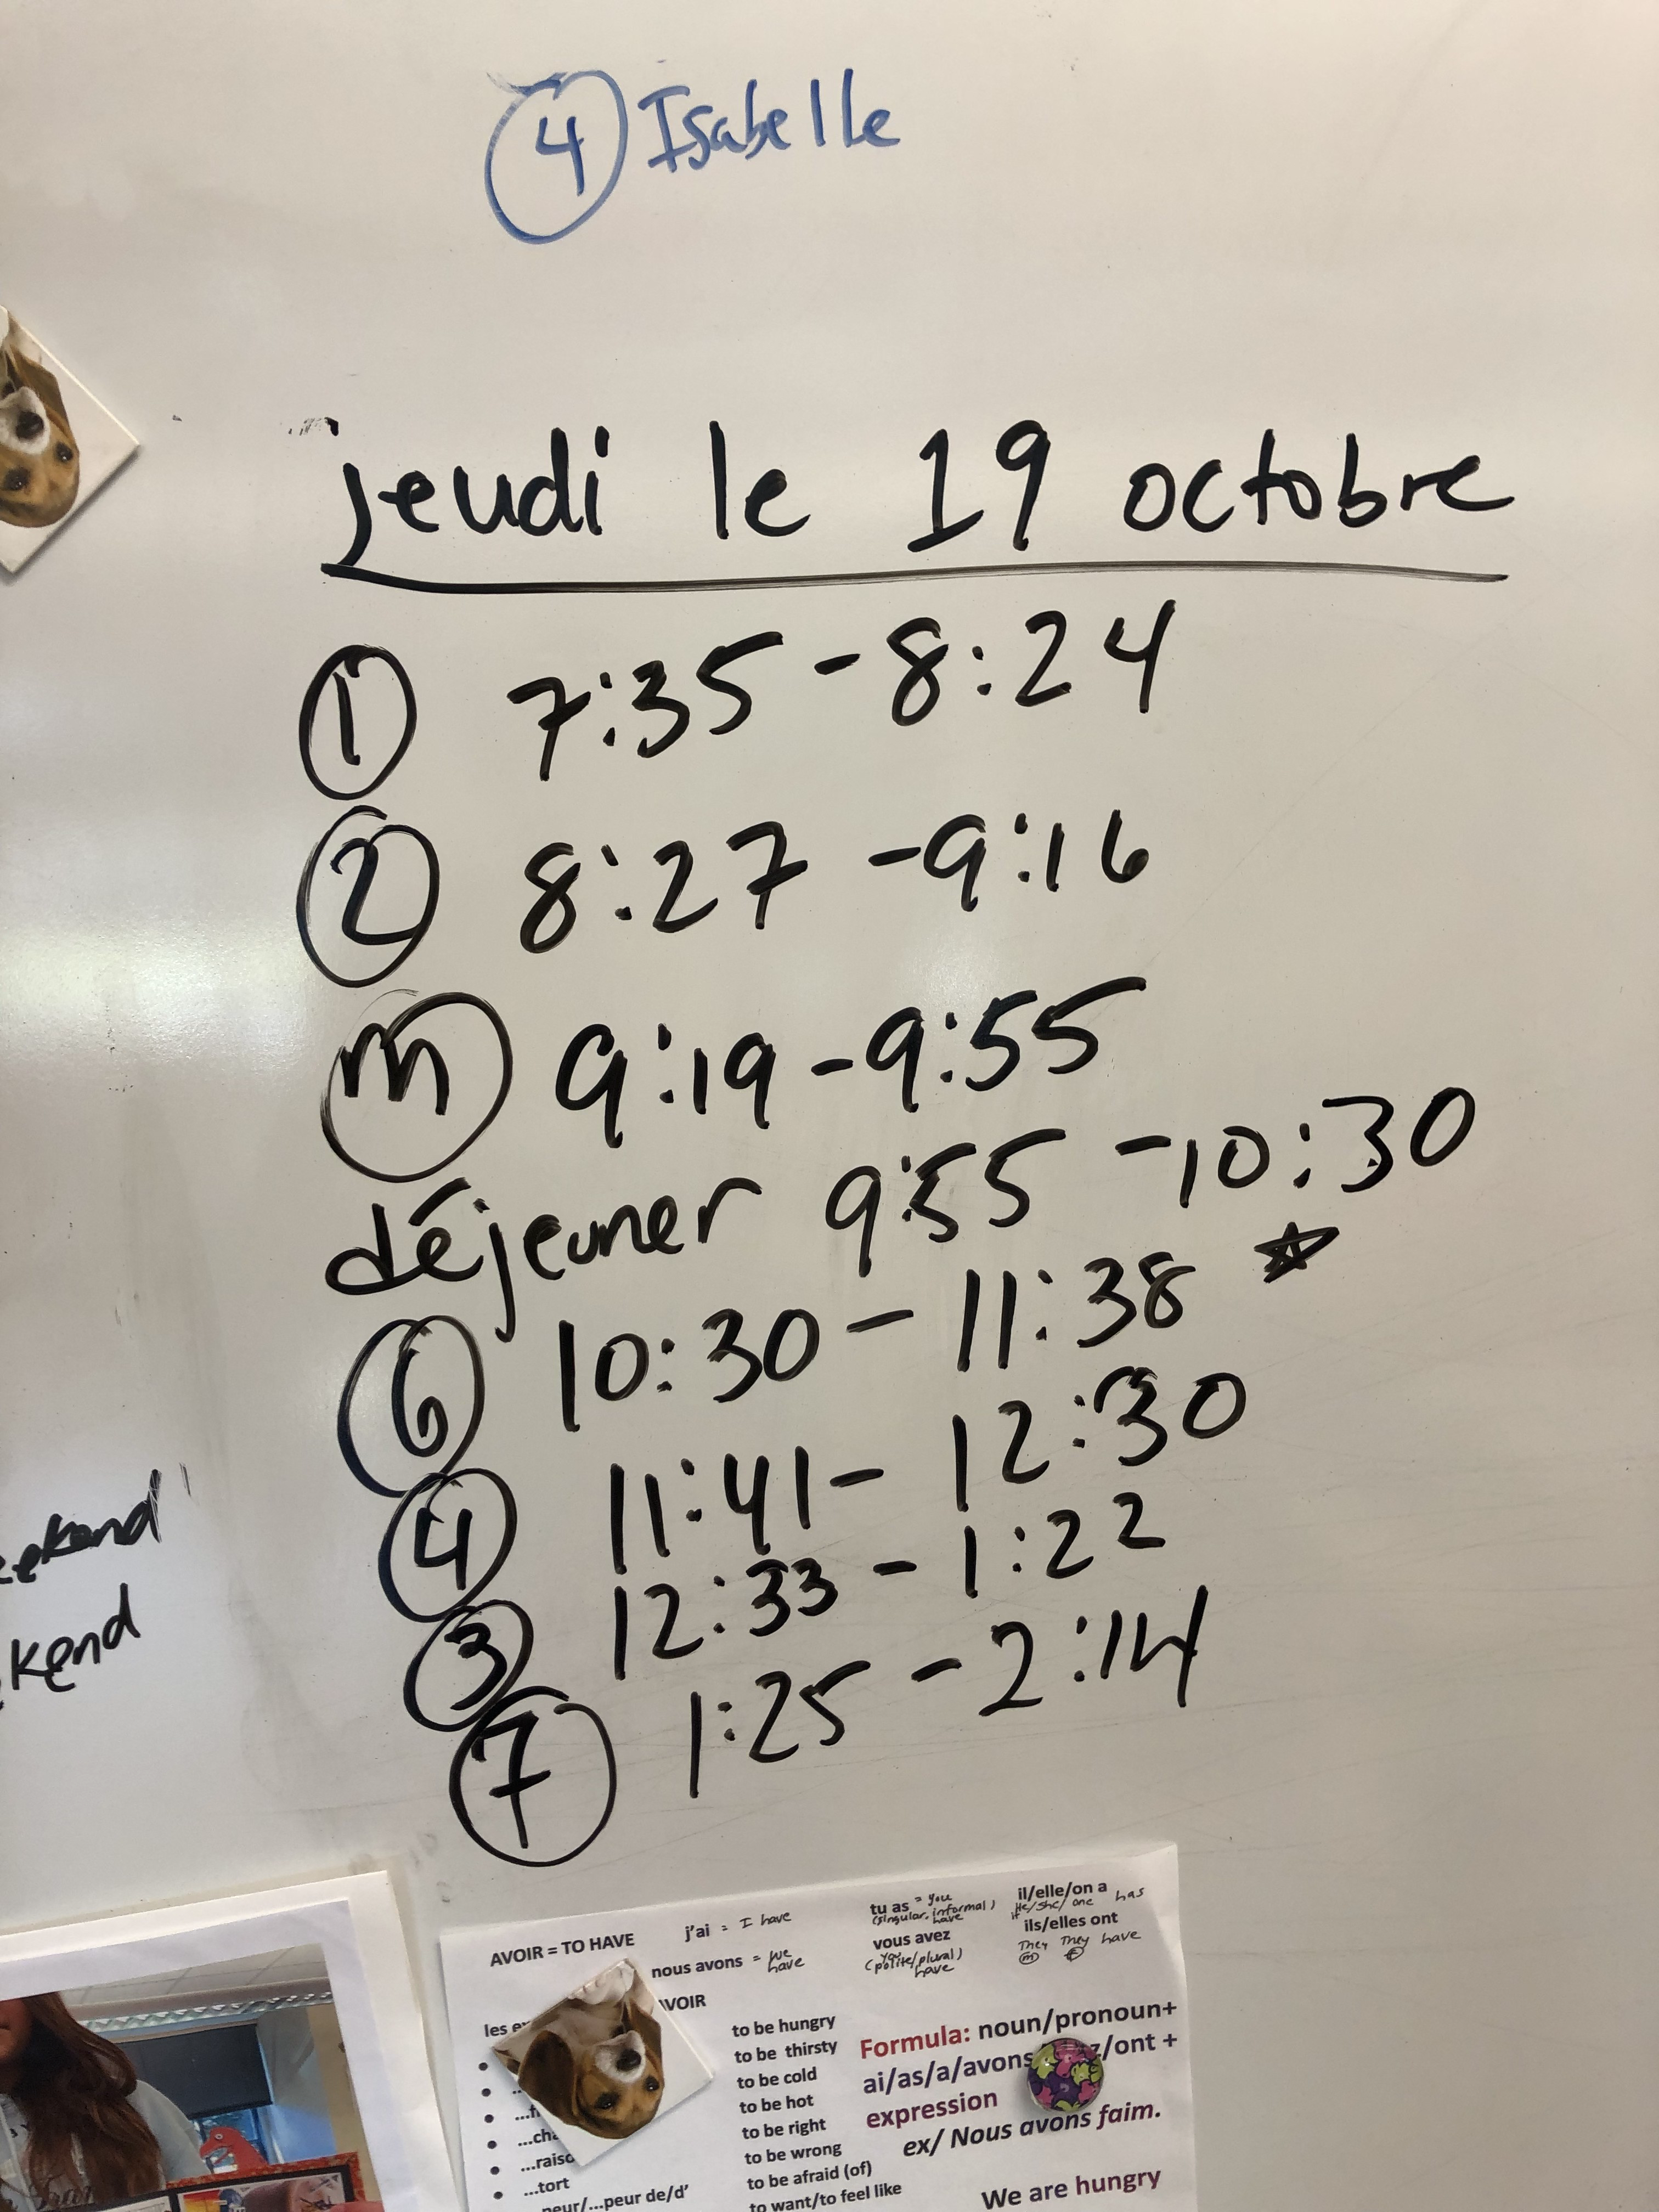 ④ Isabelle
jeudi le 19 octobre
① 7:35 - 8:24
② 8:27 - 9:16
ⓜ 9:19 - 9:55
déjeuner 9:55 - 10:30
⑥ 10:30 - 11:38 ☆
④ 11:41 - 12:30
③ 12:33 - 1:22
⑦ 1:25 - 2:14
kend
AVOIR = TO HAVE
j'ai = I have
nous avons = we have
tu as = you
(singular, informal)
have
vous avez
you
(polite/plural)
have
il/elle/on a
He/She/one has
ils/elles ont
They They have
Ⓜ Ⓕ
to be hungry
to be thirsty
to be cold
to be hot
to be right
to be wrong
to be afraid (of)
to want/to feel like
...tort
...peur de/d'
Formula: noun/pronoun+
ai/as/a/avons
/ont +
expression
ex/ Nous avons faim.
We are hungry